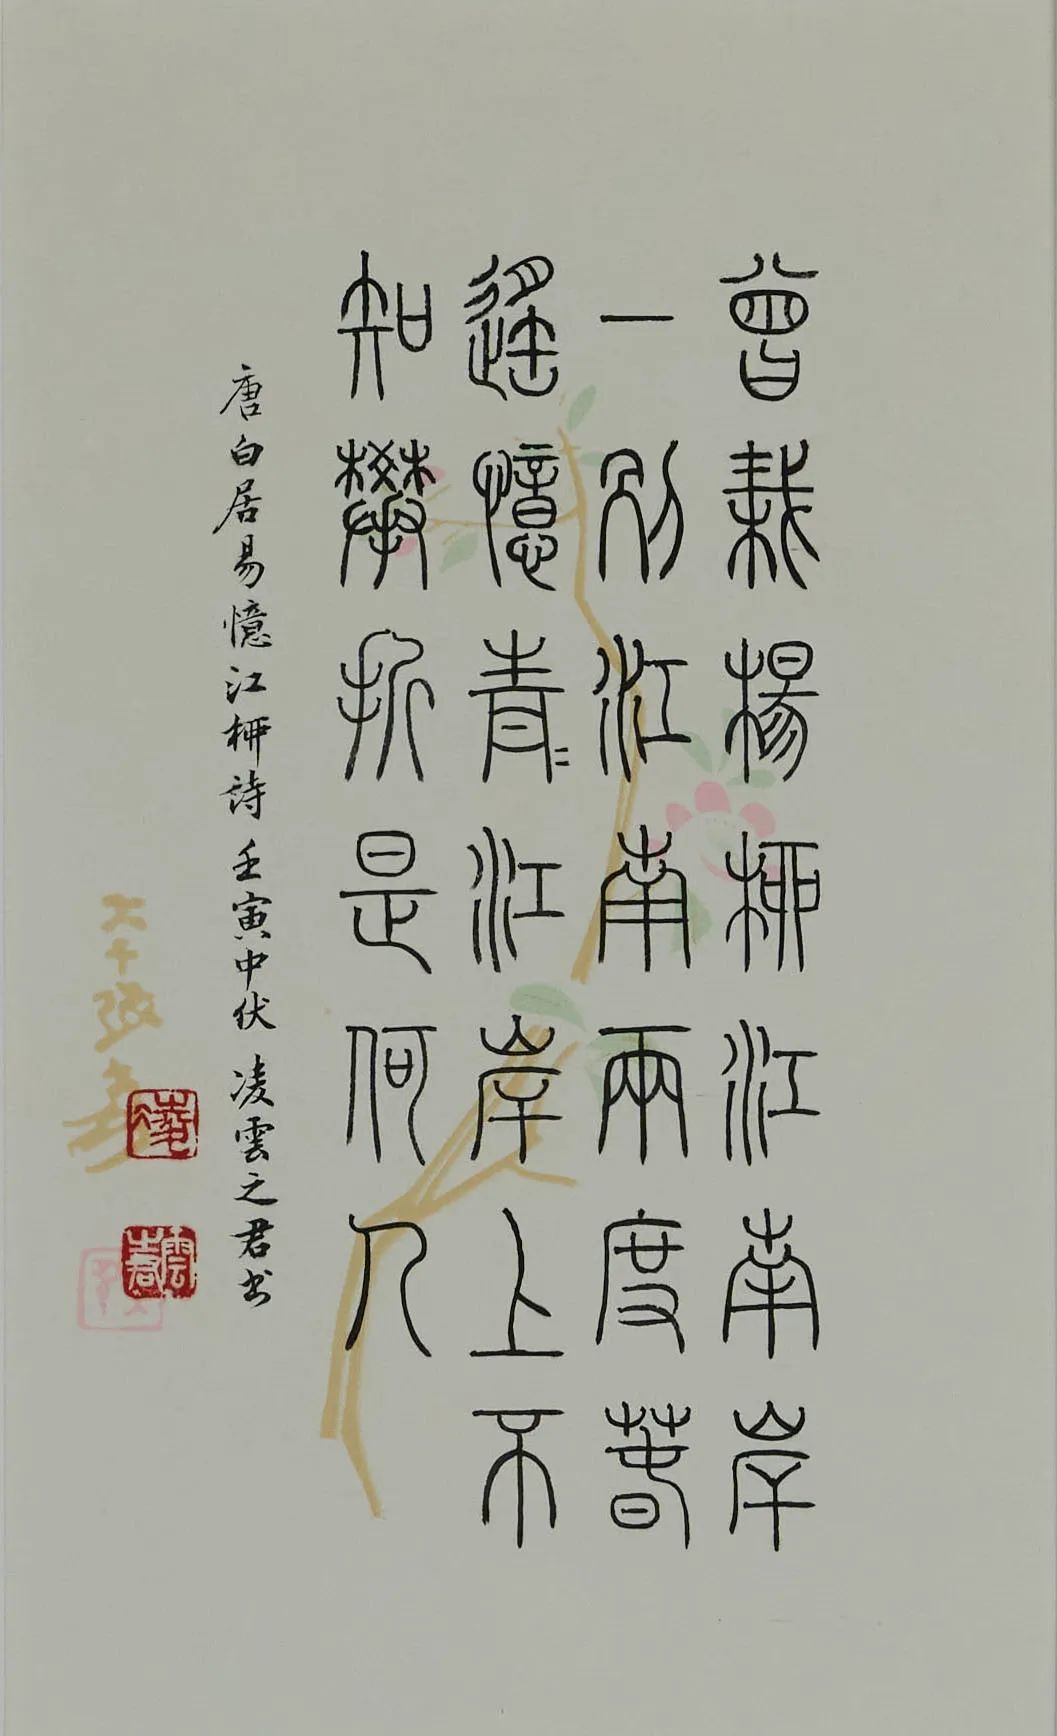 曾栽楊柳江南岸
一別江南兩度春
遙憶青〻江岸上不
知攀折是何人
唐白居易憶江柳詩 壬寅中伏 凌雲之君书
凌
雲君